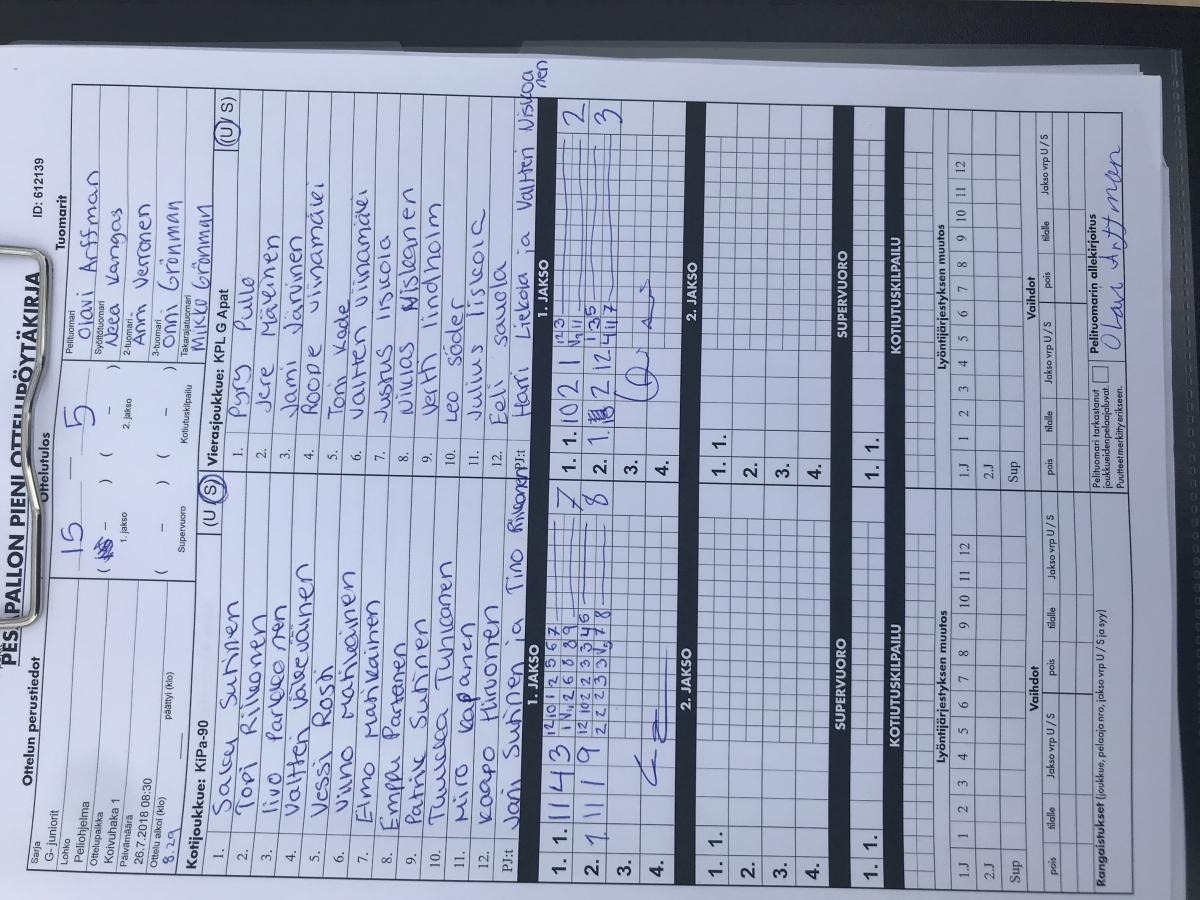 PESÄPALLON PIENI OTTELUPÖYTÄKIRJA
ID: 612139
Ottelun perustiedot
Sarja
G-juniorit
Lohko
Peliohjelma
Ottelupaikka
Koivuhaka 1
Päivämäärä
26.7.2018 08:30
Ottelu alkoi (klo)
8.29
päättyi (klo)
Ottelutulos
15 – 5
( – ) ( – )
1. jakso 2. jakso
( – ) ( – )
Supervuoro Kotiutuskilpailu
Tuomarit
Pelituomari
Olavi Arffman
Syöttötuomari
Neea Kangas
2-tuomari
Anni Veronen
3-tuomari
Onni Grönman
Takarajatuomari
Mikko Grönman
Kotijoukkue: KiPa-90 (U / S)
1. Sakari Suhinen
2. Topi Riikonen
3. Iivo Parkkonen
4. Valtteri Väkeväinen
5. Vessi Rasti
6. Viino Matikainen
7. Elmo Matikainen
8. Emppu Partanen
9. Patrik Suhinen
10. Tuukka Tuhkanen
11. Miro Kapanen
12. Kaapo Hirvonen
PJ:t Jani Suhinen ja Tino Riikonen
Vierasjoukkue: KPL G Apat (U / S)
1. Pyry Pulle
2. Jere Mäveinen
3. Jami Järvinen
4. Roope Viinamäki
5. Toni Kaade
6. Valtteri Viinamäki
7. Justus Iiskola
8. Niklas Niskanen
9. Vertti Lindholm
10. Leo Söder
11. Julius Iiskola
12. Eeli Saukola
PJ:t Harri Liekola ja Valtteri Niskanen
1. JAKSO
1. 1. 11 4 3 7
2. 1 11 1 9 8
3.
4.
1. JAKSO
1. 1. 10 2 1 2
2. 1 2 12 3
3.
4.
2. JAKSO
1. 1.
2.
3.
4.
2. JAKSO
1. 1.
2.
3.
4.
SUPERVUORO
1. 1.
SUPERVUORO
1. 1.
KOTIUTUSKILPAILU
KOTIUTUSKILPAILU
Lyöntijärjestyksen muutos
1.J 1 2 3 4 5 6 7 8 9 10 11 12
2.J
Sup
Lyöntijärjestyksen muutos
1.J 1 2 3 4 5 6 7 8 9 10 11 12
2.J
Sup
Vaihdot
pois tilalle Jakso vrp U / S pois tilalle Jakso vrp U / S
Vaihdot
pois tilalle Jakso vrp U / S pois tilalle Jakso vrp U / S
Rangaistukset (joukkue, pelaaja nro, jakso vrp U / S ja syy)
Pelituomari tarkastanut
joukkueiden pelaajaluvat.
Puutteet merkitty erikseen.
Pelituomarin allekirjoitus
Olavi Arffman